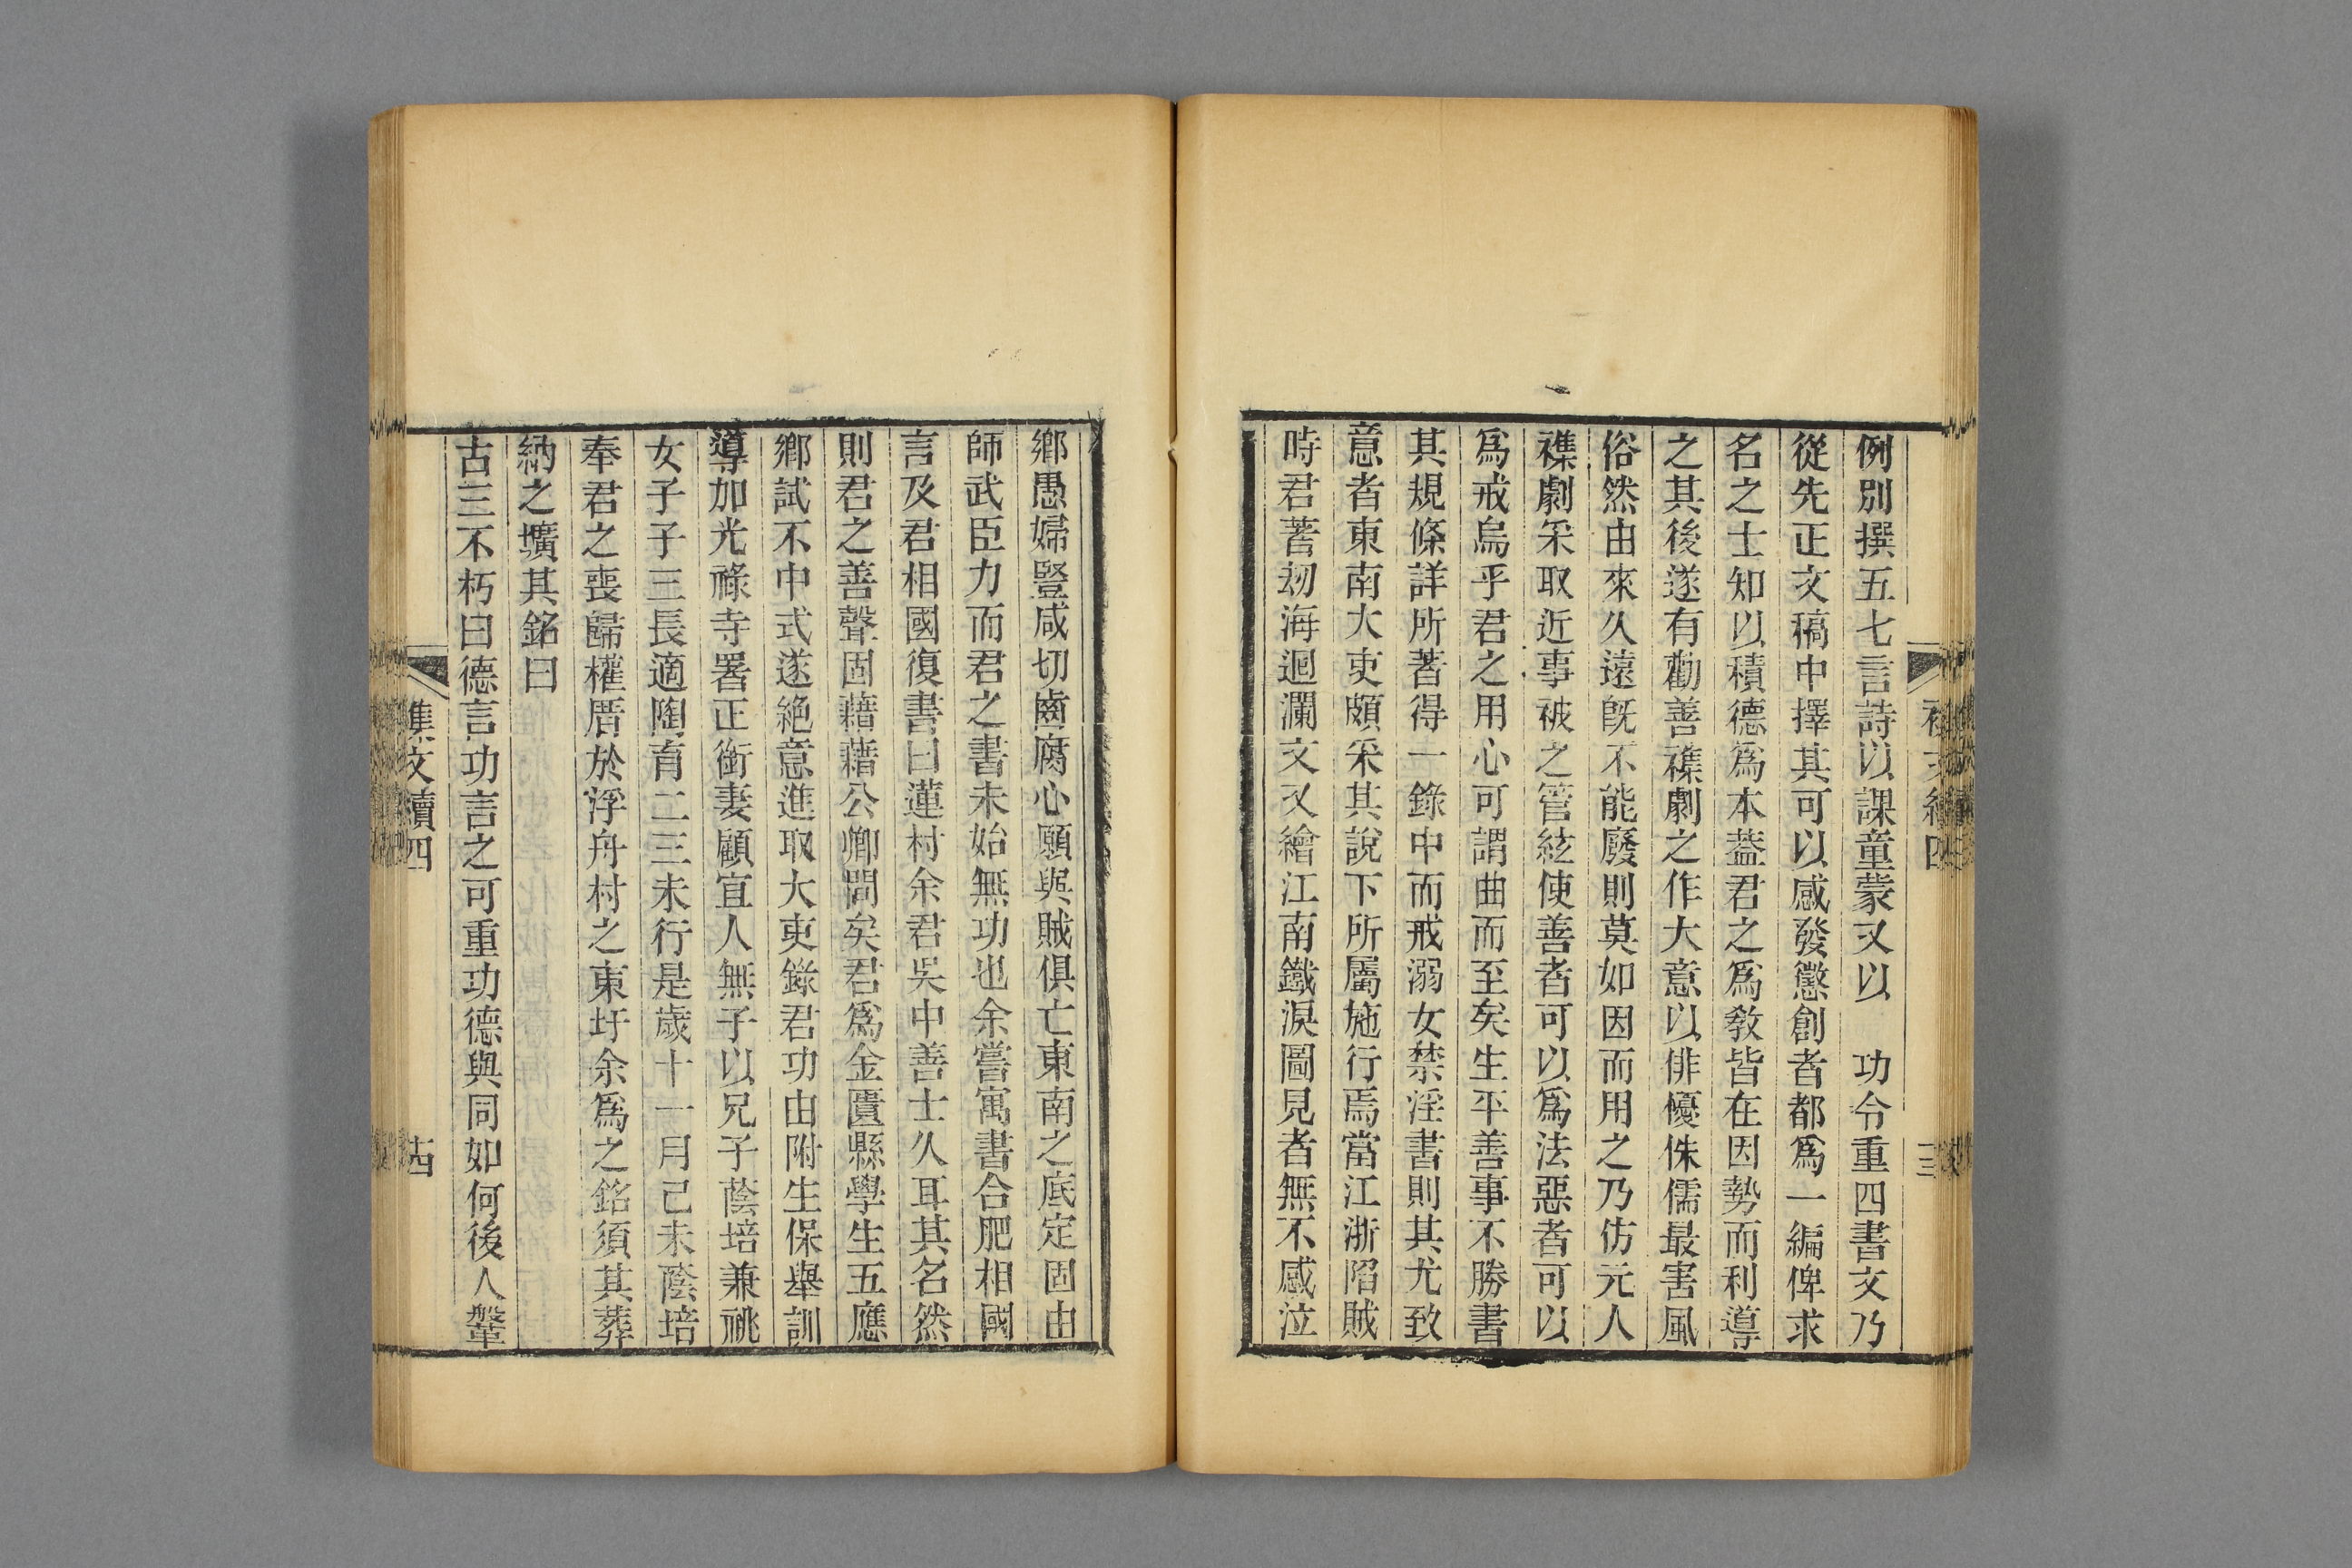 例別撰五七言詩以課童蒙又以　功令重四書文乃
從先正文稿中擇其可以感發懲創者都爲一編俾求
名之士知以積德爲本葢君之爲敎皆在因勢而利導
之其後遂有勸善襍劇之作大意以俳優侏儒最害風
俗然由來久遠旣不能廢則莫如因而用之乃仿元人
襍劇采取近事被之管絃使善者可以爲法惡者可以
爲戒烏乎君之用心可謂曲而至矣生平善事不勝書
其規條詳所著得一錄中而戒溺女禁淫書則其尤致
意者東南大吏頗采其說下所屬施行焉當江浙陷賊
時君著刼海迴瀾文又繪江南鐵淚圖見者無不感泣
三
鄕愚婦豎咸切齒腐心願與賊俱亡東南之底定固由
師武臣力而君之書未始無功也余嘗寓書合肥相國
言及君相國復書曰蓮村余君吳中善士久耳其名然
則君之善聲固藉藉公卿間矣君爲金匱縣學生五應
鄕試不中式遂絶意進取大吏錄君功由附生保舉訓
導加光祿寺署正銜妻顧宜人無子以兄子蔭培兼祧
女子子三長適陶育二三未行是歲十一月己未蔭培
奉君之喪歸權厝於浮舟村之東圩余爲之銘須其葬
納之壙其銘曰
古三不朽曰德言功言之可重功德與同如何後人鞶
襍文續四